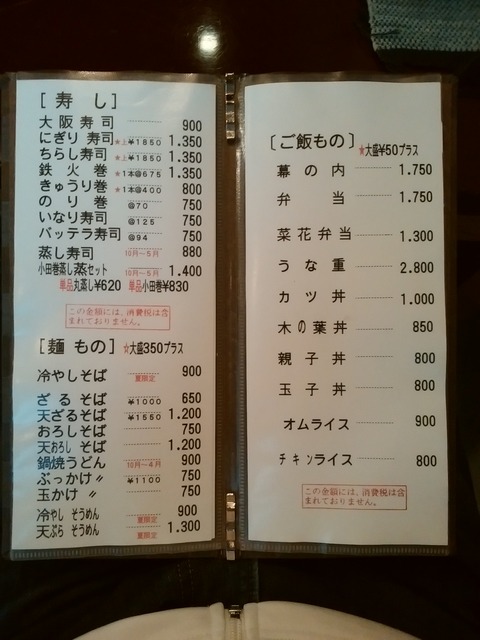 [寿し]
大阪寿司 900
にぎり寿司 ★上¥1850 1.350
ちらし寿司 ★上¥1850 1.350
鉄火巻 ★1本@675 1.350
きゅうり巻 ★1本@400 800
のり巻 @70 750
いなり寿司 @125 750
バッテラ寿司 @94 750
蒸し寿司 10月〜5月 880
小田巻蒸し蒸セット 10月〜5月 1.400
単品丸蒸し¥620 単品小田巻¥830
この金額には、消費税は含
まれておりません。
[麺もの] ☆大盛350プラス
冷やしそば 夏限定 900
ざるそば ¥1000 650
天ざるそば ¥1550 1.200
おろしそば 750
天おろしそば 1.200
鍋焼うどん 10月〜4月 900
ぶっかけ〃 ¥1100 750
玉かけ〃 750
冷やしそうめん 夏限定 900
天ぷらそうめん 夏限定 1.300
[ご飯もの] ★大盛¥50プラス
幕の内 1.750
弁当 1.750
菜花弁当 1.300
うな重 2.800
カツ丼 1.000
木の葉丼 850
親子丼 800
玉子丼 800
オムライス 900
チキンライス 800
この金額には、消費税は含
まれておりません。